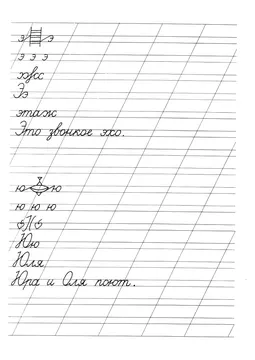 э э
э э э
Ээ
этаж
Это звонкое эхо.
ю ю
ю ю ю
Юю
Юля,
Юра и Оля поют.